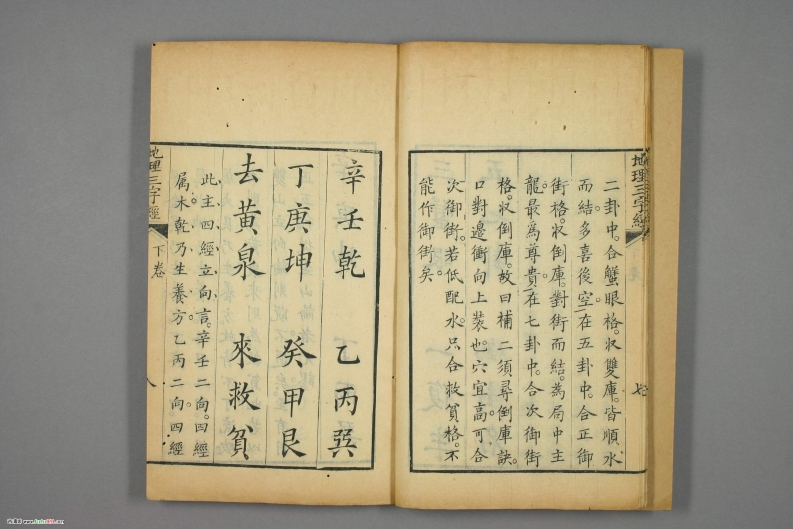 地理三字經
七
二卦中。合蟹眼格。收雙庫。皆順水
而結。多喜後空。在五卦中。合正御
街格。收倒庫。對街而結。為局中主
龍。最為尊貴。在七卦中。合次御街
格。收倒庫。故曰補二須尋倒庫訣。
口對邊衝向上裝也。穴宜高。可合
次御街。若低配水。只合救貧格。不
能作御街矣。
辛壬乾 乙丙巽
丁庚坤 癸甲艮
去黃泉 來救貧
此主四經立向言。辛壬二向。四經
属木。乾乃生養方。乙丙二向。四經
地理三字經
下卷
八